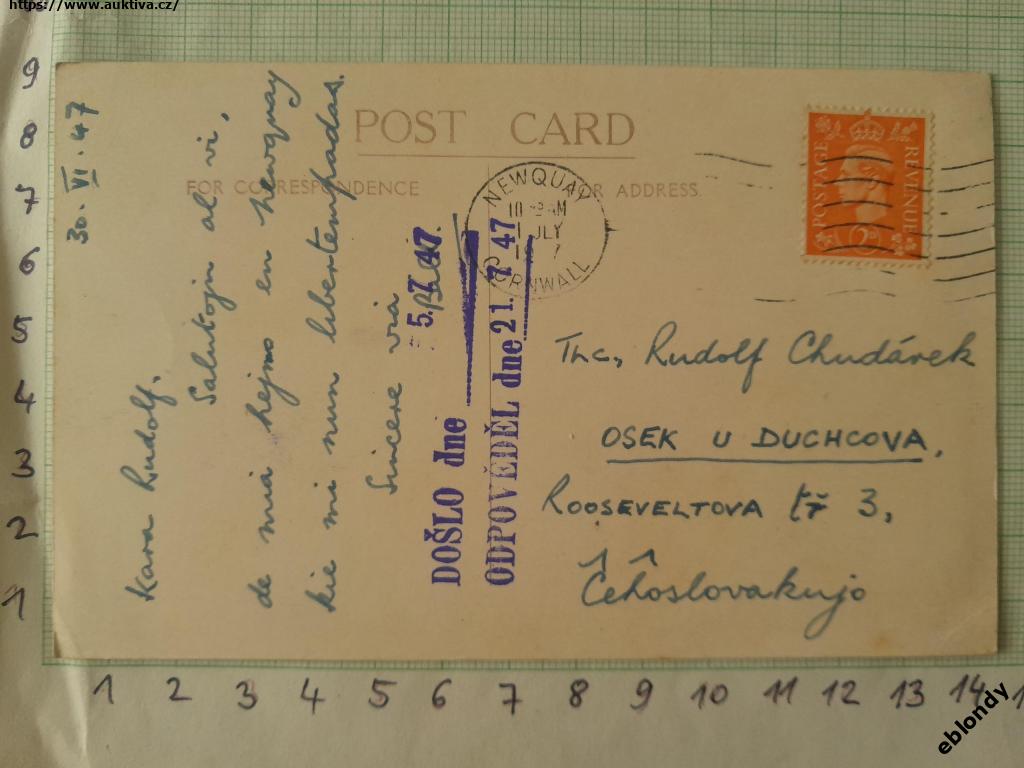 https://www.auktiva.cz/
POST CARD
FOR CORRESPONDENCE
FOR ADDRESS.
30.VI.47
Kara Rudolf,
Salutojn al vi,
de mia hejmo en newquay
kie mi nun libertempadas.
Sincere via
DOŠLO dne 5.7.47.
ODPOVĚDĚL dne 21.7.47
NEWQUAY
CORNWALL
JLY
POSTAGE
REVENUE
Rudolf Chudárek
OSEK U DUCHCOVA,
ROOSEVELTOVA tř 3,
Ĉeĥoslovakujo
9
8
7
6
5
4
3
2
1
1 2 3 4 5 6 7 8 9 10 11 12 13 14
eblondy